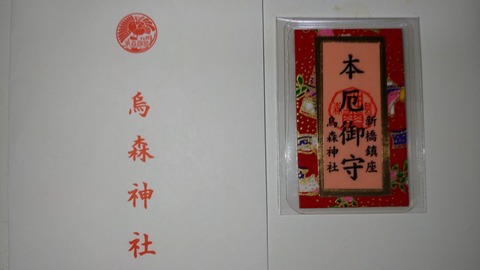 烏森神社
本厄御守
新橋鎮座
烏森神社